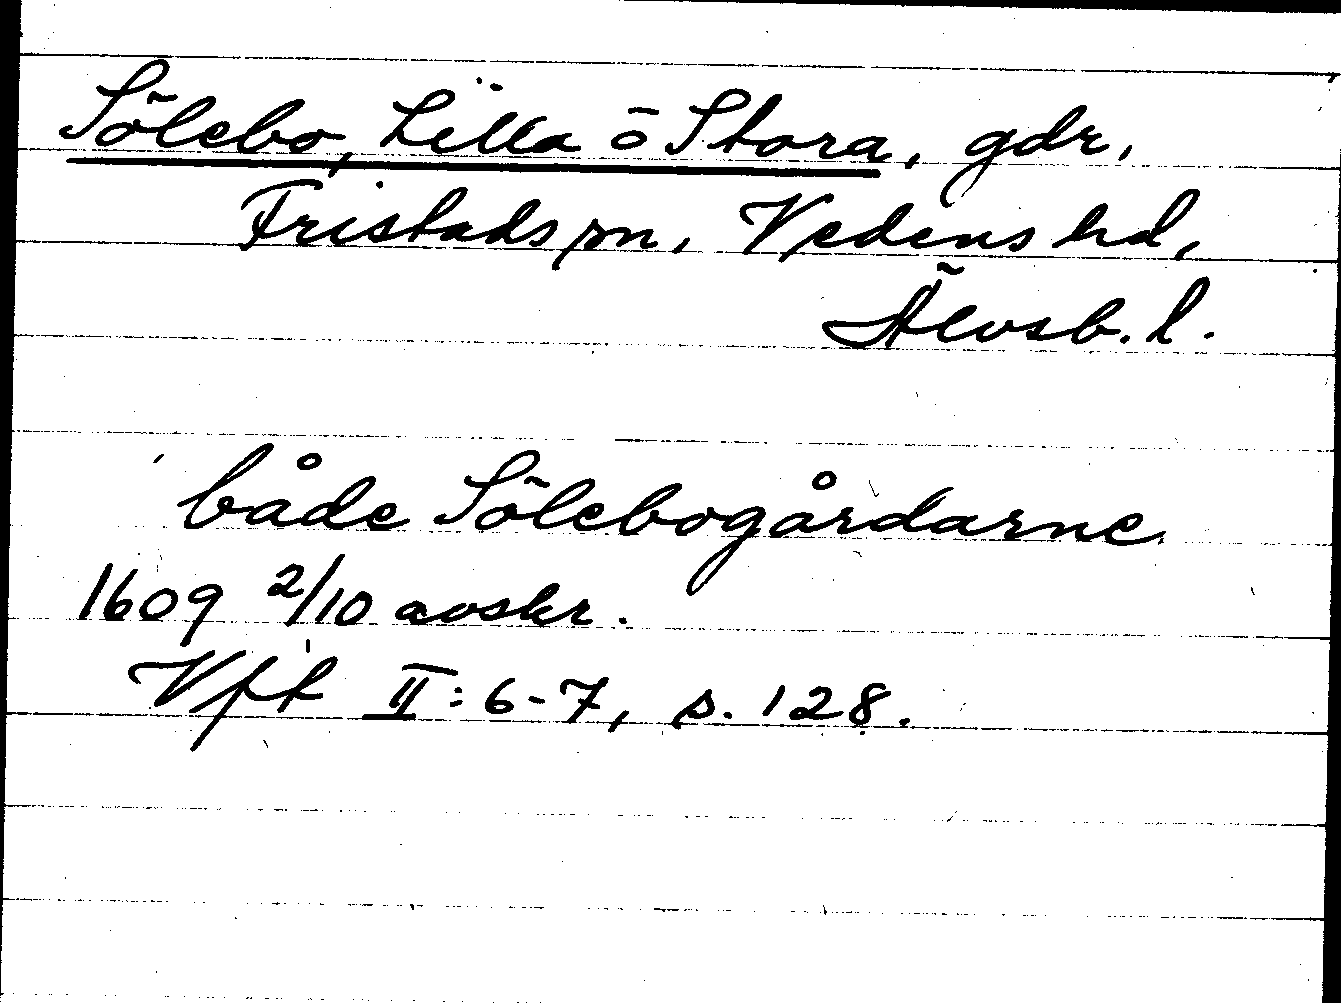 Sölebo, Lilla o Stora, gdr,
Fristads sn, Vedens hd,
Älvsb. l.
både Sölebogårdarne
1609 2/10 avskr.
Vft II: 6-7, s. 128.